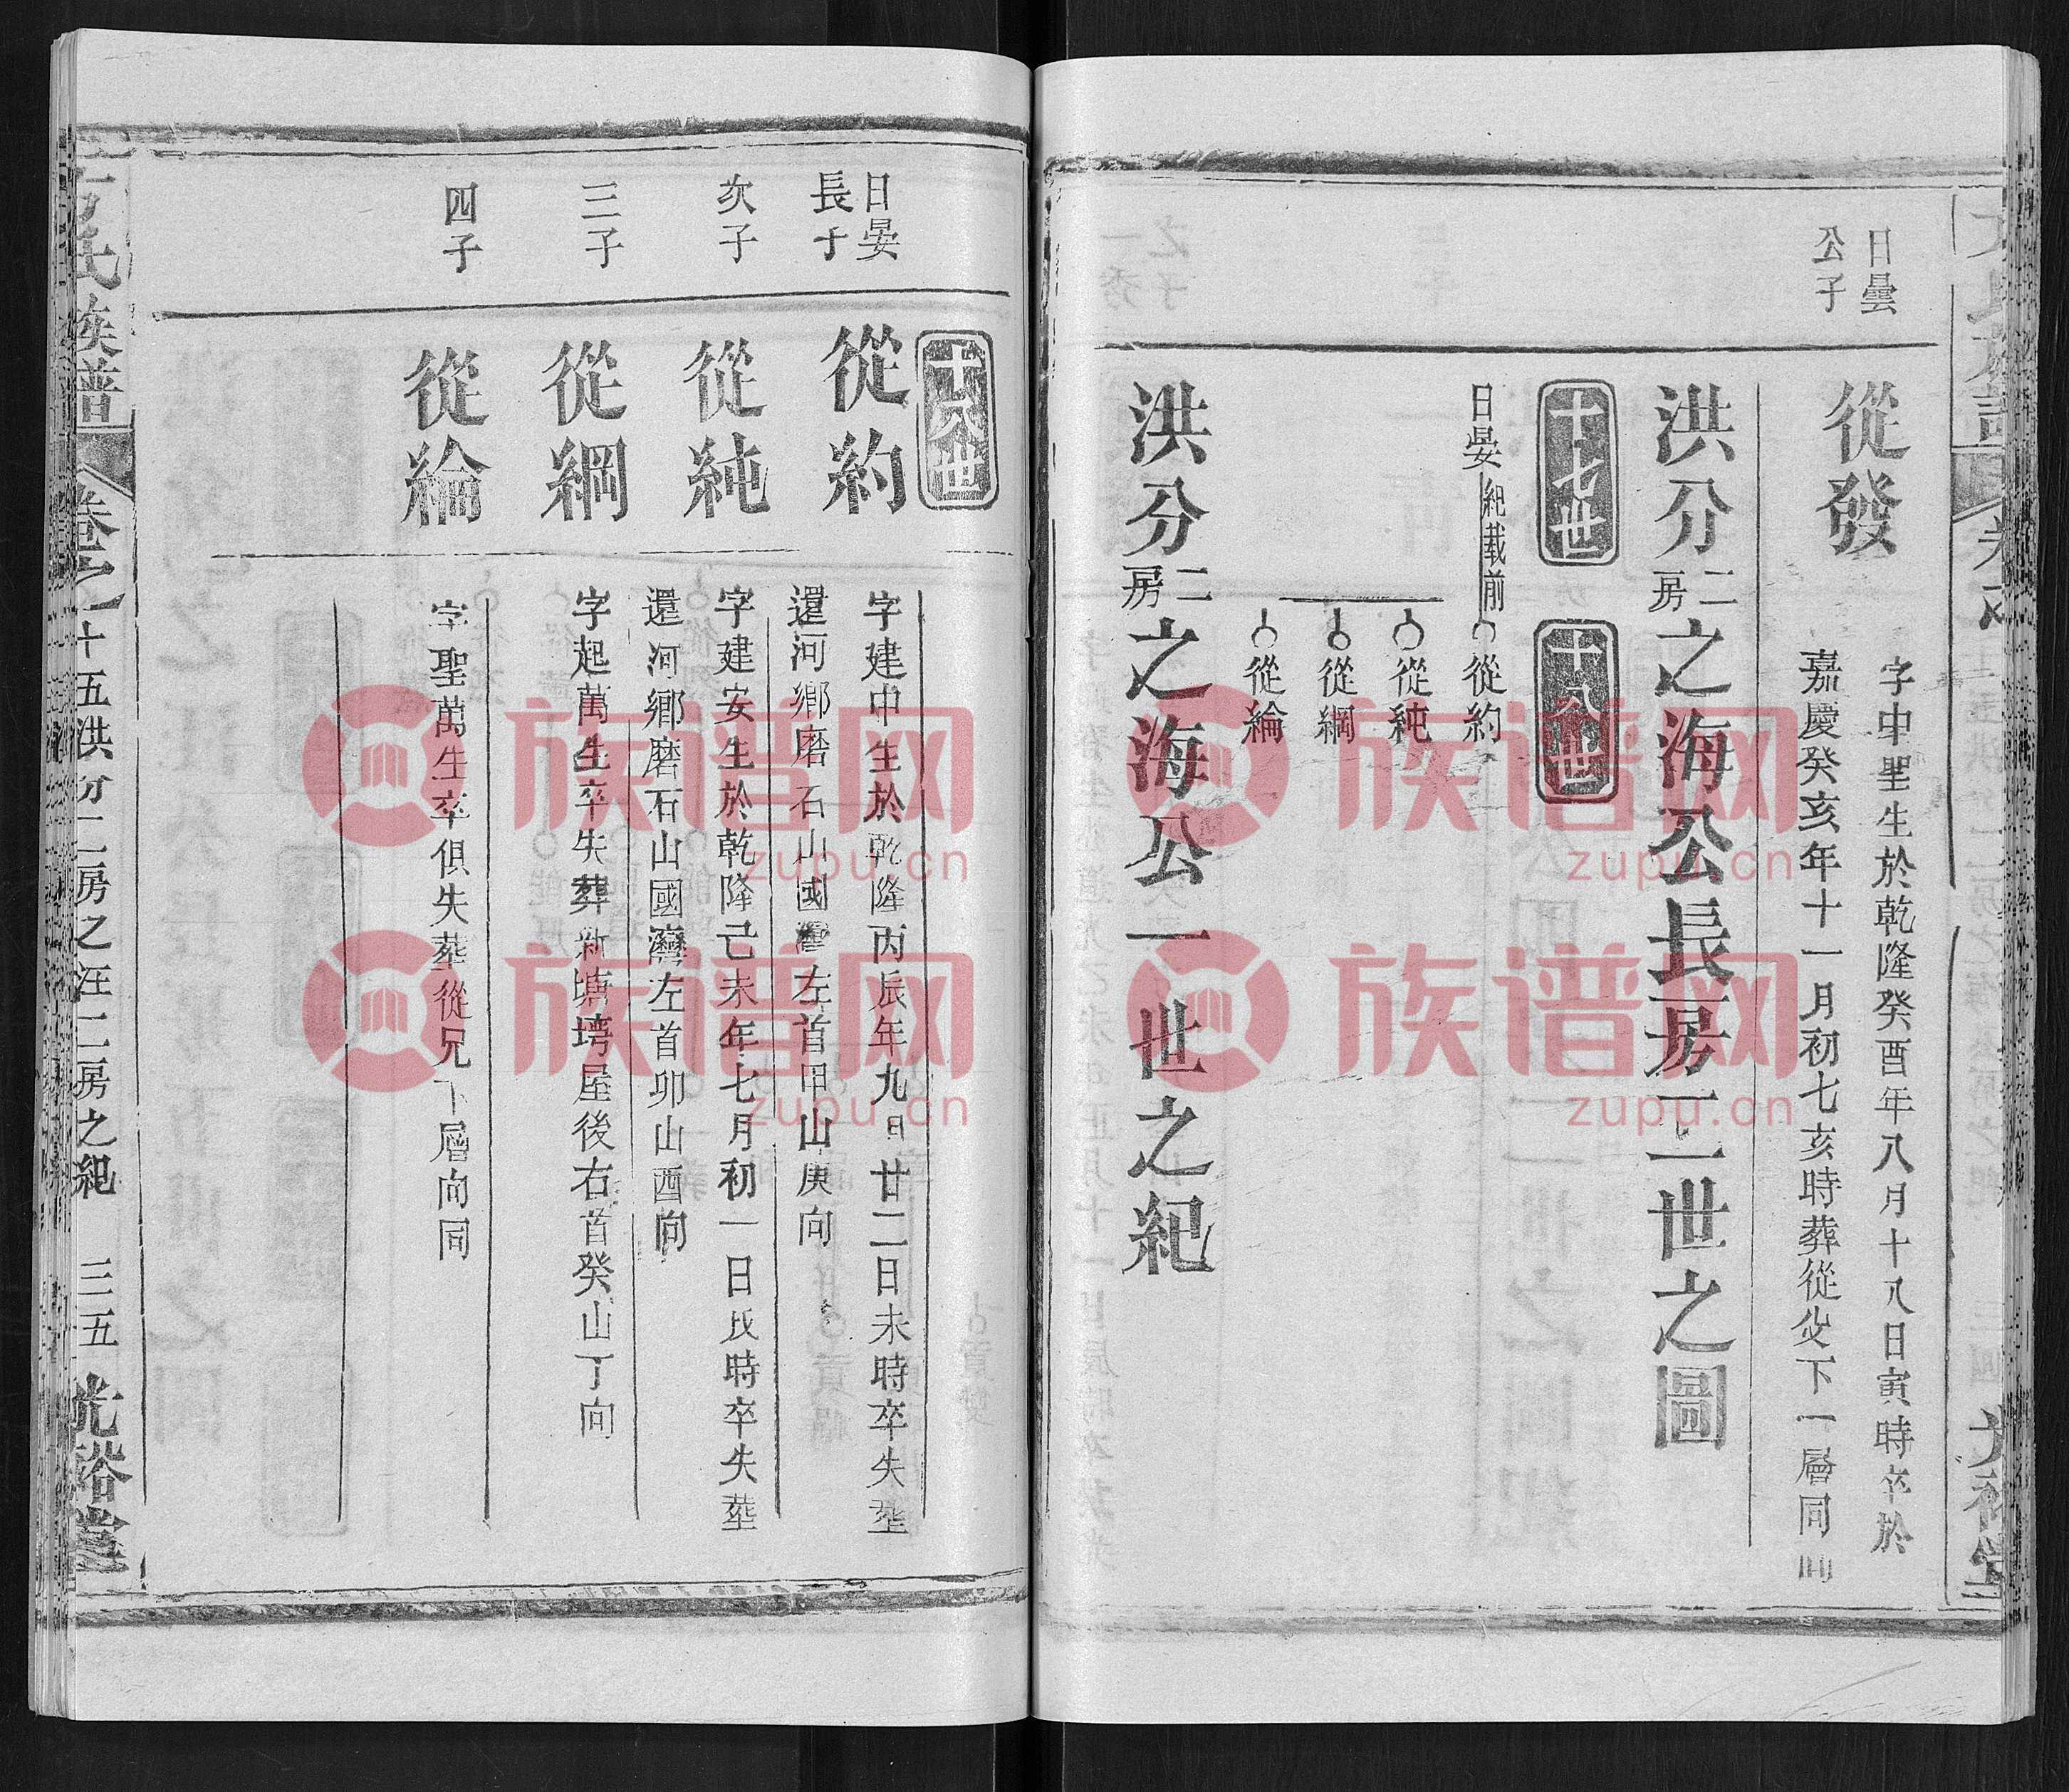 日曇
公子
從發
字中里生於乾隆癸酉年八月十八日寅時卒於
嘉慶癸亥年十一月初七亥時葬從父下一層同向
洪分二房之海公長房二世之圖
十七世
十八世
日晏紀載前
從約
從純
從綱
從綸
洪分二房之海公一世之紀
十八世
日晏
長子
從約
字建中生於乾隆丙辰年九月廿二日未時卒失塟
還河鄉磨石山國灣左首甲山庚向
次子
從純
字建安生於乾隆己未年七月初一日辰時卒失塟
還河鄉磨石山國灣左首卯山酉向
三子
從綱
字起萬生卒失葬新塘塆屋後右首癸山丁向
四子
從綸
字聖萬生卒俱失塟從兄下層向同
氏族譜
卷之十五洪分二房之汪二房之紀
三五
光裕堂
族谱网
zupu.cn
族谱网
zupu.cn
族谱网
zupu.cn
族谱网
zupu.cn